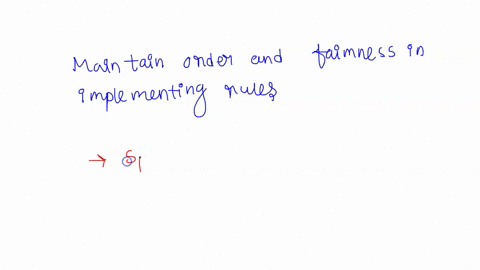 Maintain order and fairness in
implementing rules
→